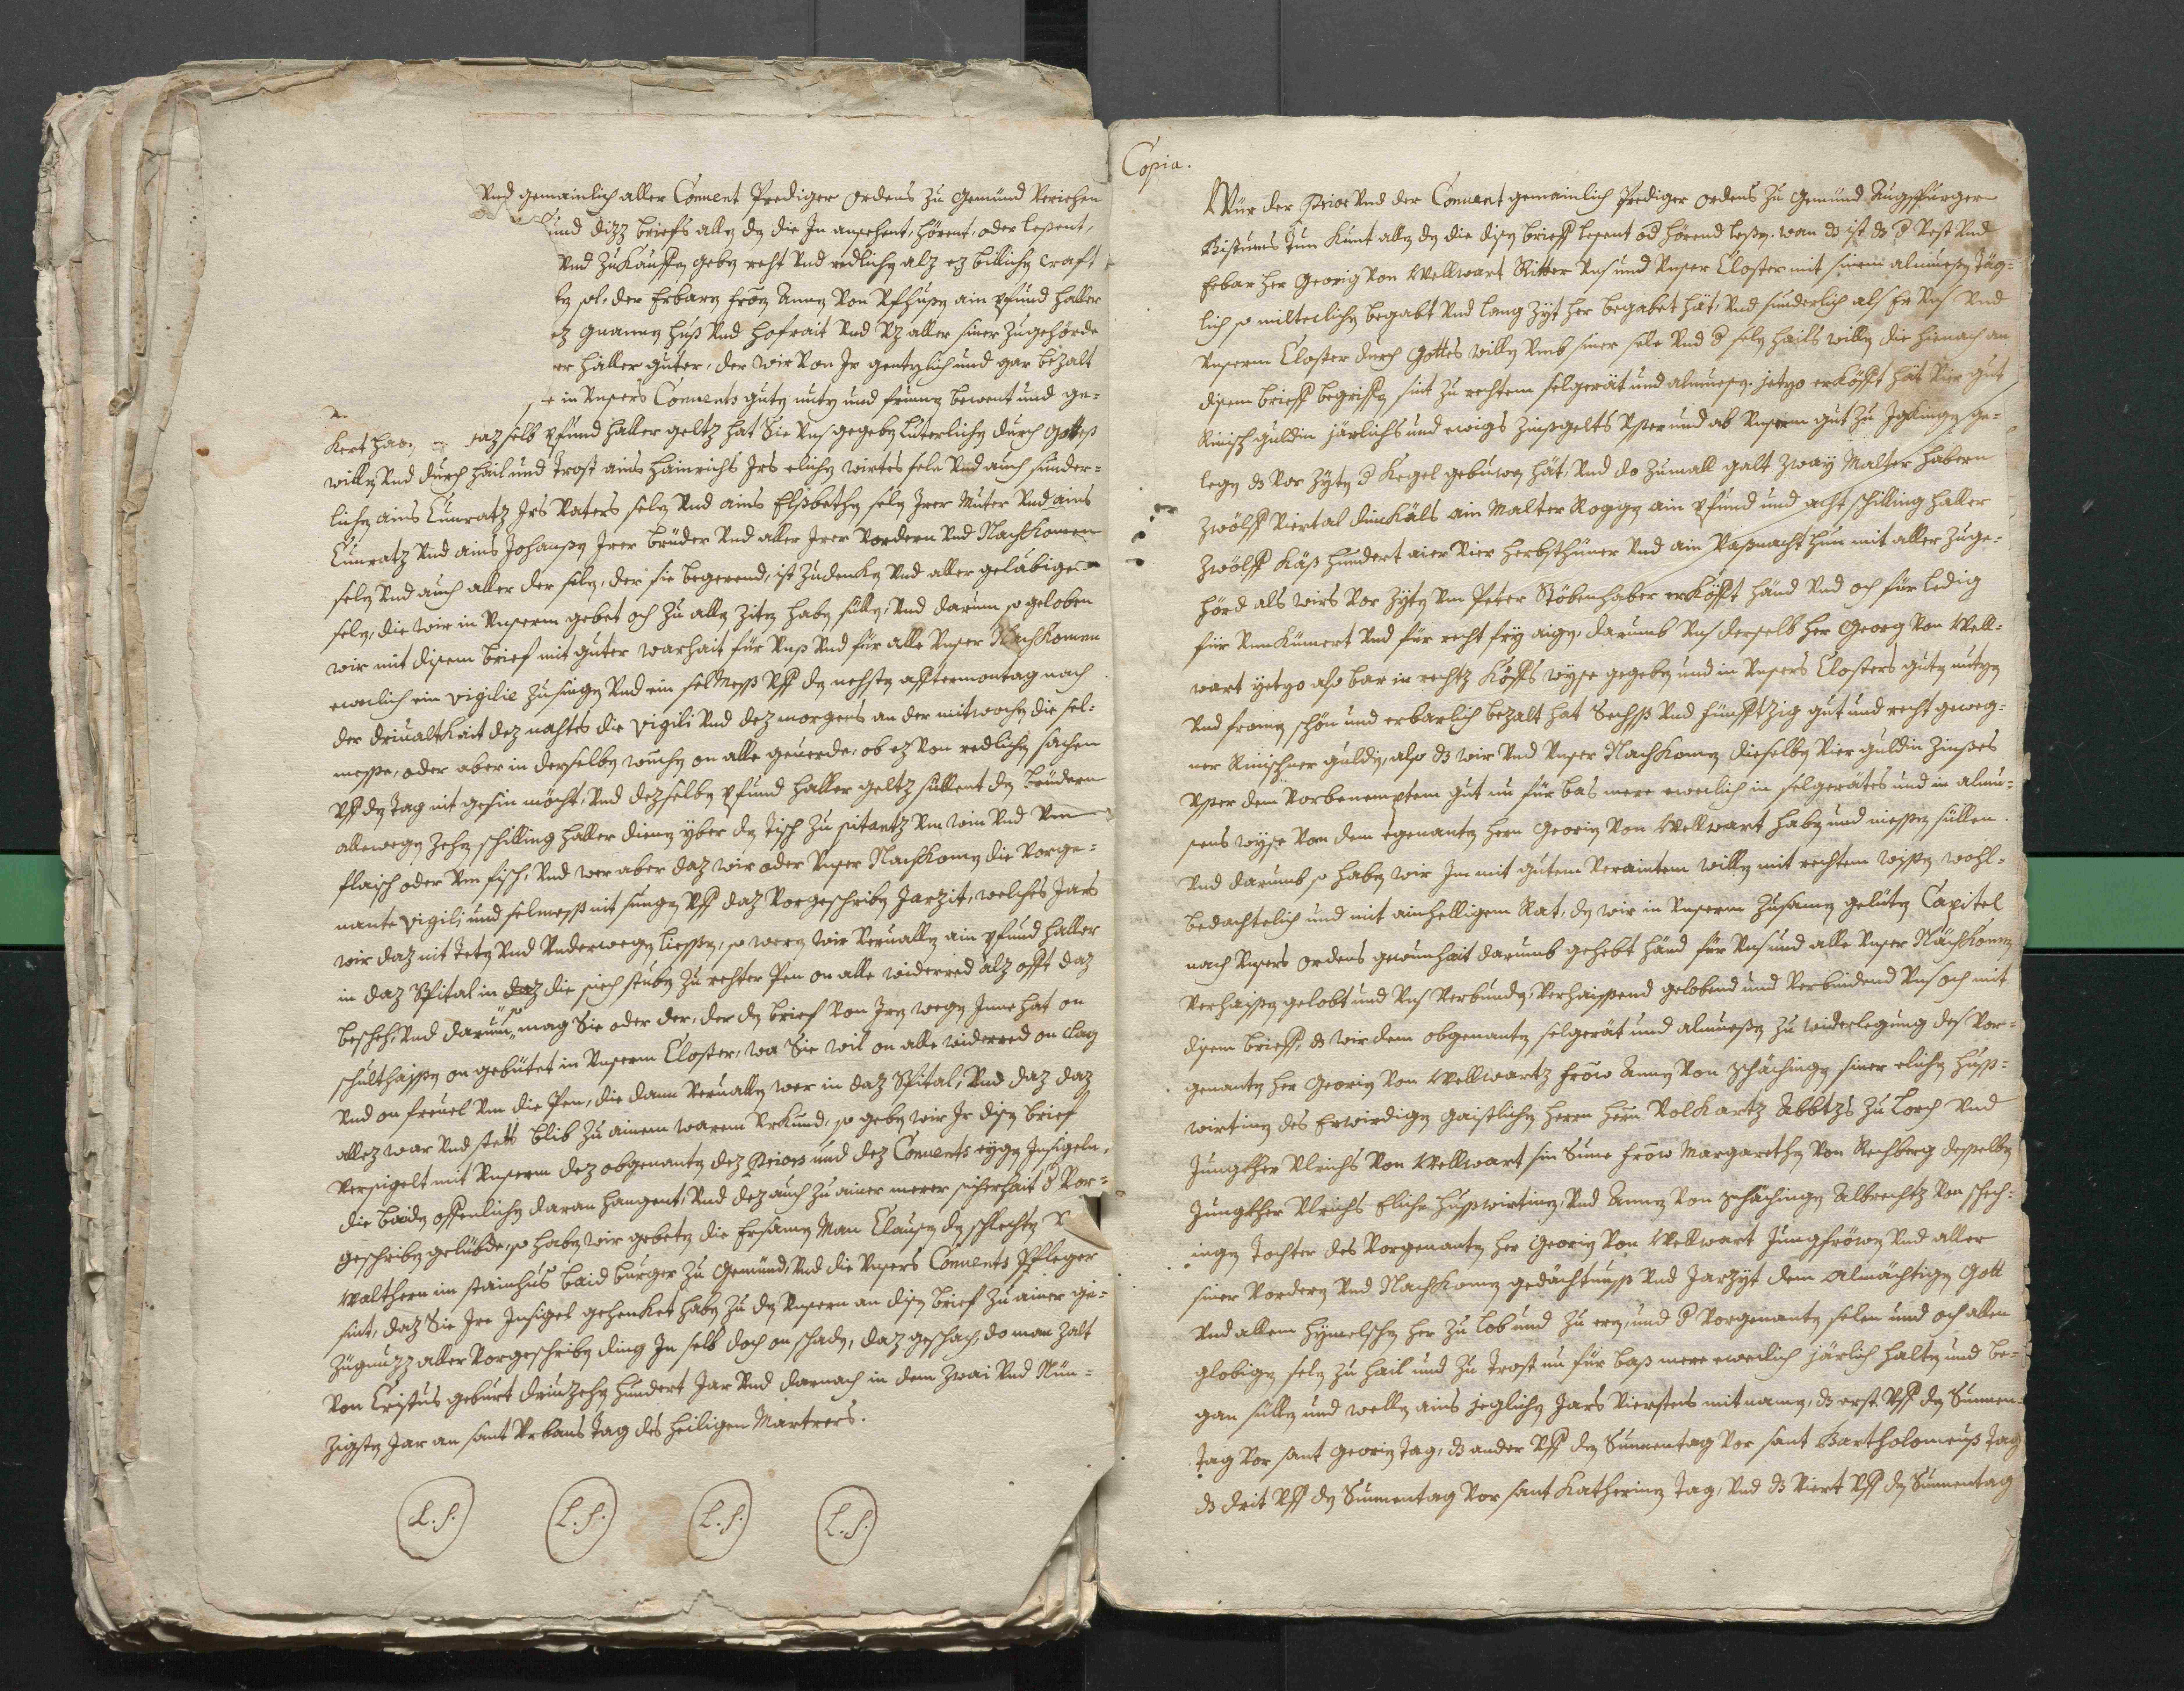 Vnd gemainlich aller Conuent Prediger ordens zu Gemünd Veriehen
kund dizz briefs allen den die In ansehent, hörent, oder lesent,
Vnd zu Kauffen geben reht Vnd redlichen alz ez billichen craft
en sol, der Erbaren fröen Annen Von Vfhusen ain pfund haller
ez gnannen huß Vnd hofrait Vnd Vz aller siner Zugehörde
er haller guter, der wir Von Ir gentzlich und gar bezalt
e in Vnsers Conuents guten nutz und frumen bewent und ge-
kert haben daz selb pfund haller geltz hat Sie Vns gegeben luterlichen durch Gottes
willen Vnd durch hail und trost ains hainrichs Irs elichen wirtes sele Vnd auch sunder-
lichen ains Cunratz Irs Vaters selen Vnd ains Elsbethen selen Irer Muter Vnd ains
Cunratz Vnd ains Johansen Irer brüder Vnd aller Irer Vordern Vnd Nachkomen
selen Vnd auch aller der selen, der sie begerend, ist zudenken Vnd aller geläbigen
selen, die wir in Vnserm gebet och zu allen ziten haben süllen, Vnd darum so geloben
wir mit disem brief mit guter warhait für Vns Vnd für alle Vnser Nachkomen
ewenlich ein Vigilie zusingen Vnd ein selMess Vff den nehsten afftermontag nach
der driualtkait dez nahtes die Vigili Vnd dez morgens an der mitwochen die sel-
messe, oder aber in derselben wuchen on alle geuerde, ob ez Von redlichen sachen
Vff den tag nit gesin möcht, Vnd dezselben pfund haller geltz süllent den brüdern
allewegen zehen schilling haller dienen über den tisch zu pitantz Vm win Vnd Vm
flaisch oder Vm fisch, Vnd wer aber daz wir oder Vnser Nachkomen die Vorge-
nante Vigili und selmess nit sungen Vff daz Vorgeschriben Jarzit, welches Jars
wir daz nit teten Vnd Vnderwegen liessen, so weren wir Veruallen ain pfund haller
in daz Spital in daz die siech stuben zu rechter Pen on alle widerred alz offt daz
beschech, Vnd darum so mag Sie oder der, der den brief Von Iren wegen Inne hat on
schulthaissen on gebütet in Vnserm Closter, wa Sie wil on alle widerred on clag
Vnd on freuel Vm die Pen, die dann Veruallen wer in daz Spital, Vnd daz daz
allez war Vnd stets blib zu ainem warem Vrkund, so geben wir Ir disen brief
Versigelt mit Vnserm dez obgenanten dez Priors und dez Conuents eygen Insigeln,
die baide offenlichen daran hangent, Vnd dez auch zu ainer merer sicherhait d Vor-
geschriben gelübde, so haben wir gebeten die Ersamen Man Clausen den schlechten V
Walthern im stainhus baid burger zu Gemünd, Vnd die Vnsers Conuents Pfleger
sint, daz Sie Ire Insigel gehenket haben zu den Vnsern an disen brief zu ainer ge-
zügnuzz aller Vorgeschriben ding In selb doch on schaden, daz geschach, do man zalt
Von Cristus geburt driuzehen hundert Jar Vnd darnach in dem zwai Vnd Nün-
zigsten Jar an sant Vrbans tag des heiligen Martrers.
L.S. L.S. L.S. L.S.
Copia.
Wür der Prior Vnd der Conuent gemainlich Prediger ordens zu Gemünd Augspurger
Bistums tun kunt allen den die disen brieff lesent od hörend lesen. wan dz ist dz d Vest Vnd
Erbar her Georig Von Wellwart Ritter Vns und Vnser Closter mit sinem almuesen täg-
lich so miltenlichen begabt Vnd lang zyt her begabet hät, Vnd sunderlich als Er Vns Vnd
Vnserm Closter durch Gottes willen Vmb siner sele Vnd d selen hails willen die hienach an
disem brieff begriffen sint zu rechtem selgerät und almuesen, jetzo erköfft hät Vier gut
Rinisch guldin järlichs und ewigs zinsgelts Vsser und ab Vnserm gut zu Igkingen ge-
legen dz Vor zyten d Kegel gebuwen hät, Vnd do zumall galt zway Malter habern
zwölff Viertal dinkäls ain Malter Roggen ain pfund und acht schilling haller
zwölff käß hundert aier Vier herbsthüner Vnd ain Vaßnacht hun mit aller zuge-
hörd als wirs Vor zyten Vm Peter Stöbenhaber erköfft händ Vnd och für ledig
für Vnnkümert Vnd für recht fry aigen, darumb Vns derselb her Georg Von Well-
wart yetzo also bar in rechtz köffs wyse gegeben und in Vnsers Closters guten nutzen
Vnd fromen schön und erbarlich bezalt hat Sechß Vnd fünfftzig gut und recht geweg-
ner Rinischer guldin, also dz wir Vnd Vnser Nachkomen dieselben Vier guldin zinßes
Vsser dem Vorbenemptem gut nu für bas mere ewenlich in selgerätes und in almu-
sens wyse Von dem egenanten hern Georien Von Wellwart haben und niessen süllen.
Vnd darumb so haben wir Im mit gutem Veraintem willen mit rechtem wissen wohl-
bedachtelich und mit ainhelligem Rat, den wir in Vnserm zusamen gelüten Capitel
nach Vnsers ordens gewunhait darumb gehebt händ für Vns und alle Vnser Nächkomen
Verhaissen gelobt und Vns Verbunden, Verhaissend gelobend und Verbindend Vns och mit
disem brieff, dz wir dem obgenanten selgerät und almuesen zu widerlegung des Vor-
genanten her Georien Von Wellwartz fröw Annen Von schächingen siner elichen huß-
wirtinen des Erwirdigen gaistlichen herrn herrn Volkartz Abbtzs zu Lorch Vnd
Jungkher Vlrichs Von Wellwart sin Süne fröw Margarethen Von Rechberg desselben
Jungkher Vlrichs Elichen hußwirtinen, Vnd Annen Von schächingen Albrechtz Von schech-
ingen tochter des Vorgenanten her Georien Von Wellwart Jungfröwen Vnd aller
siner Vordern Vnd Nachkomen gedächtnuss Vnd Jarzyt dem Almächtigen Gott
Vnd allem hymelschen her zu lob und zu eren, und d Vorgenanten selen und och allen
globigen selen zu hail und zu trost nu für baß mere ewenlich järlich halten und be-
gan süllen und wellen ains jeglichen Jars Vierstens mit namen, dz erst Vff den Sunnen-
tag Vor sant Georien tag, dz ander Vff den Sunnentag Vor sant Bartholomeuß tag
dz drit Vff den Sunnentag Vor sant Katherinen tag, Vnd dz Viert Vff den Sunnentag